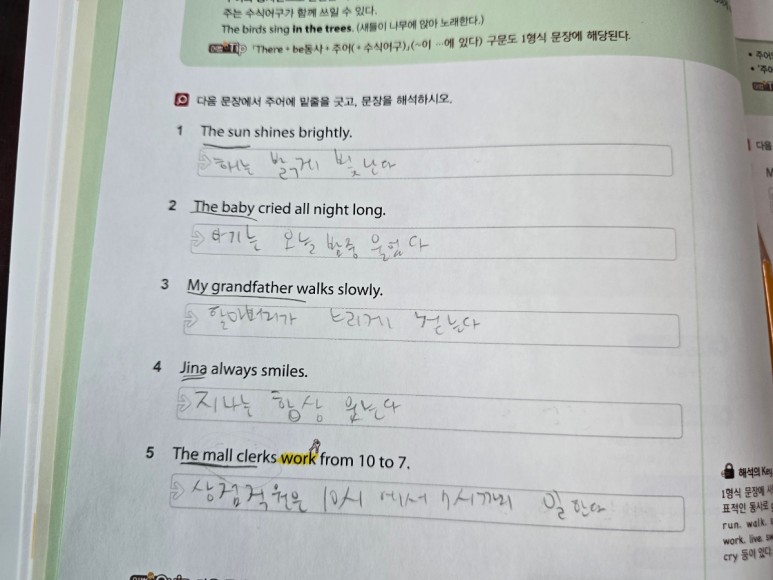 주는 수식어구가 함께 쓰일 수 있다.
The birds sing in the trees. (새들이 나무에 앉아 노래한다.)
「There + be동사 + 주어(+ 수식어구)」(~이 …에 있다) 구문도 1형식 문장에 해당된다.
다음 문장에서 주어에 밑줄을 긋고, 문장을 해석하시오.
1 The sun shines brightly.
해는 밝게 빛난다
2 The baby cried all night long.
아기는 오늘 밤중 울었다
3 My grandfather walks slowly.
할아버지가 느리게 걷는다
4 Jina always smiles.
지나는 항상 웃는다
5 The mall clerks work from 10 to 7.
상점직원은 10시에서 7시까지 일한다
해석의 Key
1형식 문장에
표적인 동사로
run, walk,
work, live,
cry 등이 있다
다음